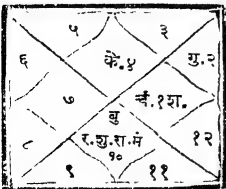 ५ ३
६ के.४ गु.२
७ चं.१श.
बु
८ र.शु.रा.मं १२
१०
९ ११